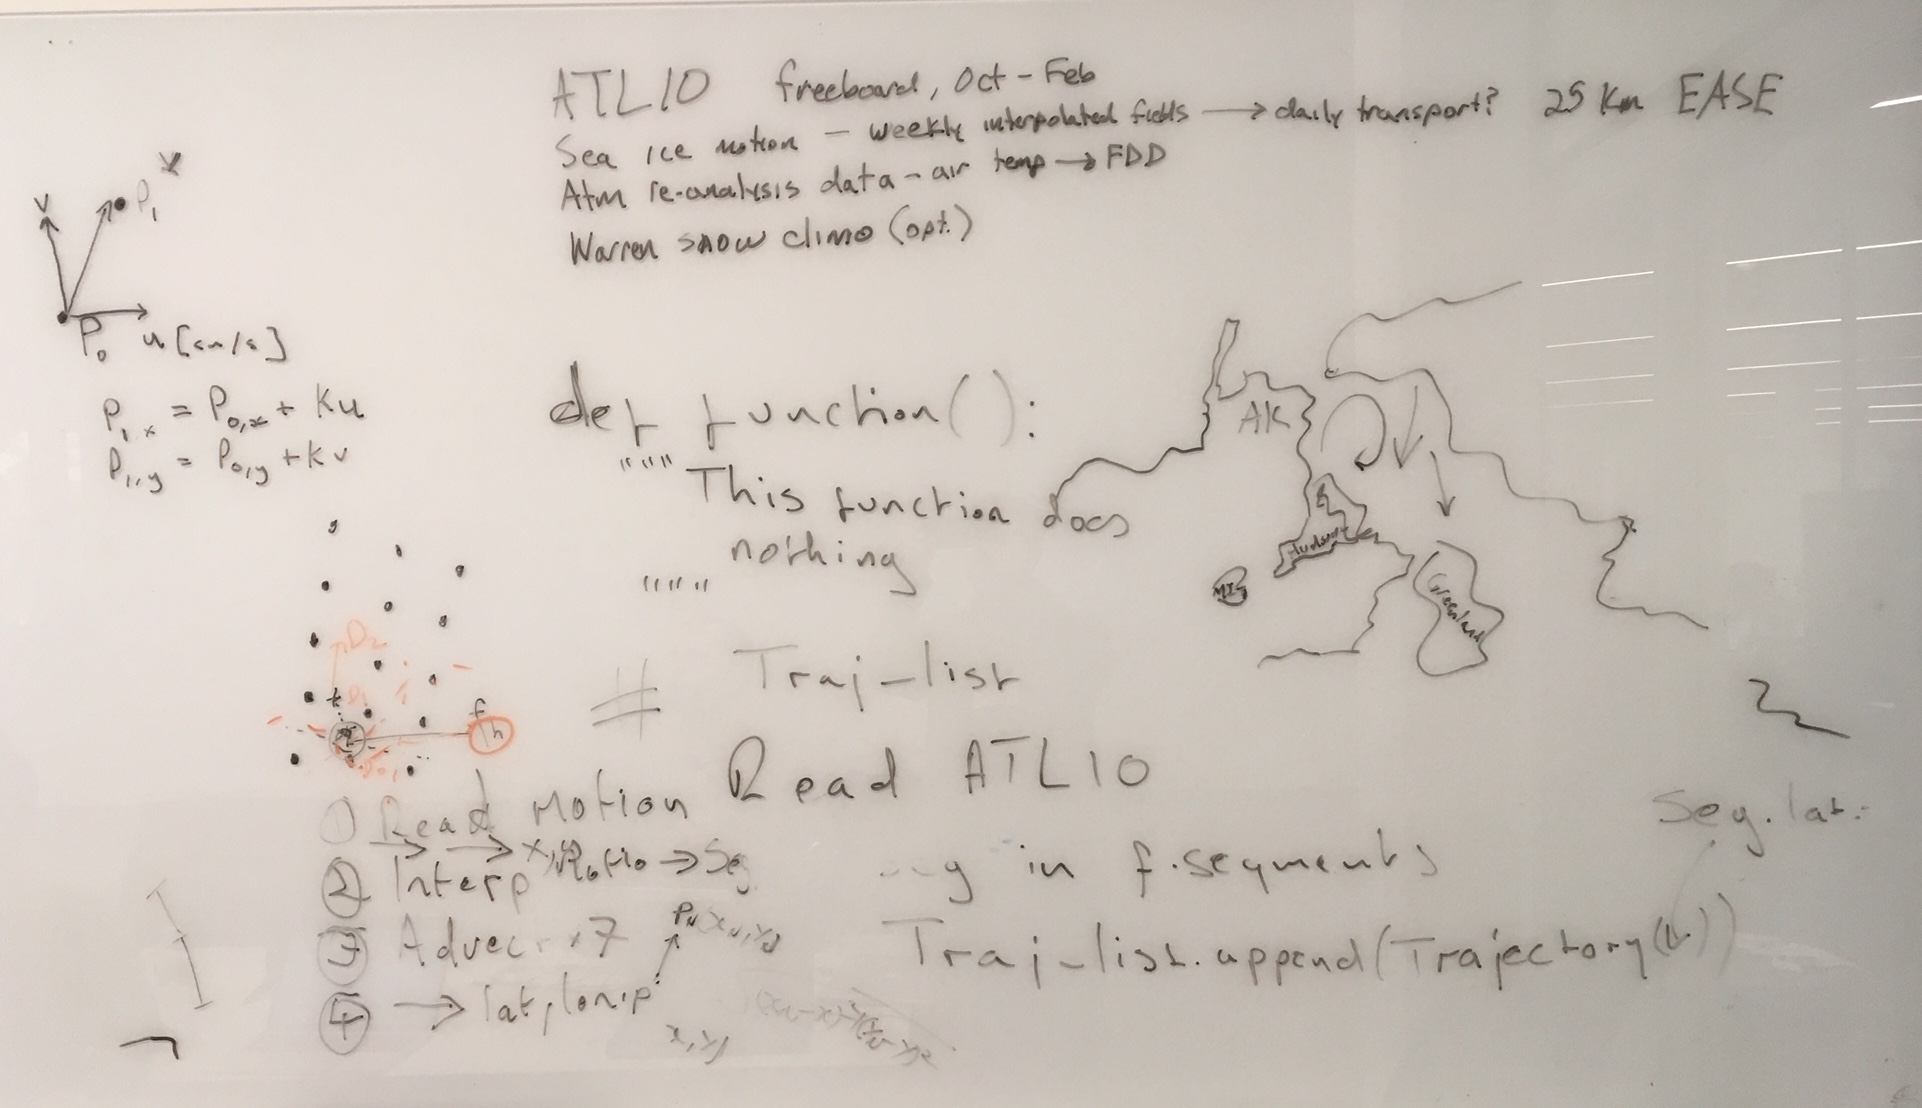 ATL10 freeboard, Oct - Feb
Sea ice motion - weekly interpolated fields → daily transport? 25 km EASE
Atm re-analysis data - air temp → FDD
Warren snow climo (opt.)
v
P₁
P₀ u [cm/s]
P₁ₓ = P₀,ₓ + Ku
P₁,y = P₀,y + Kv
def function():
"""
This function does
nothing
"""
AK
Hudson
MI
Greenland
D₂
h
# Traj-list
Read ATL10
in f.segments
Traj-list.append(Trajectory( ))
Seg.lat.
① Read Motion
② Interp Motio →
③ Advec x7
④ → lat, lon
x, y